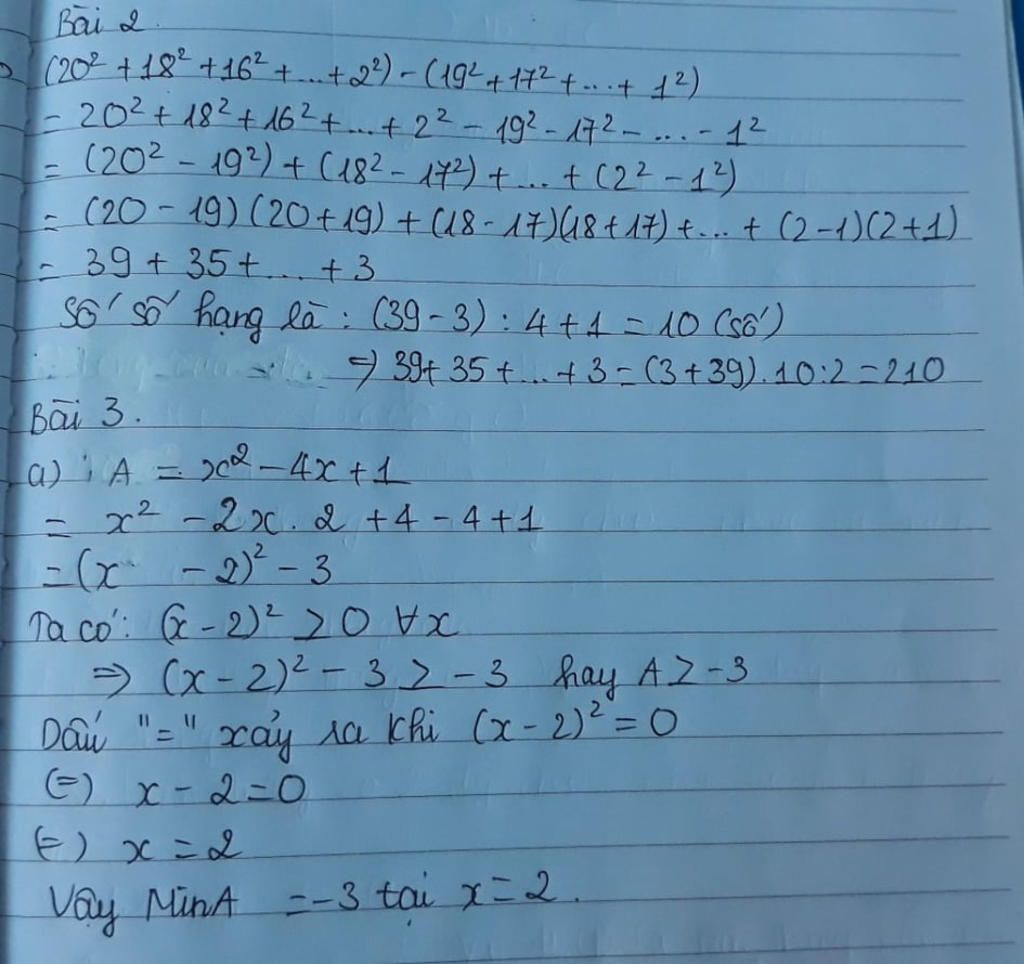 Bài 2.
(20² + 18² + 16² + ... + 2²) - (19² + 17² + ... + 1²)
= 20² + 18² + 16² + ... + 2² - 19² - 17² - ... - 1²
= (20² - 19²) + (18² - 17²) + ... + (2² - 1²)
= (20 - 19)(20 + 19) + (18 - 17)(18 + 17) + ... + (2 - 1)(2 + 1)
= 39 + 35 + ... + 3
Số số hạng là : (39 - 3) : 4 + 1 = 10 (số)
⇒ 39 + 35 + ... + 3 = (3 + 39) . 10 : 2 = 210
Bài 3.
a) A = x² - 4x + 1
= x² - 2x . 2 + 4 - 4 + 1
= (x - 2)² - 3
Ta có : (x - 2)² ≥ 0 ∀x
⇒ (x - 2)² - 3 ≥ -3 hay A ≥ -3
Dấu "=" xảy ra khi (x - 2)² = 0
(=) x - 2 = 0
(=) x = 2
Vậy MinA = -3 tại x = 2.